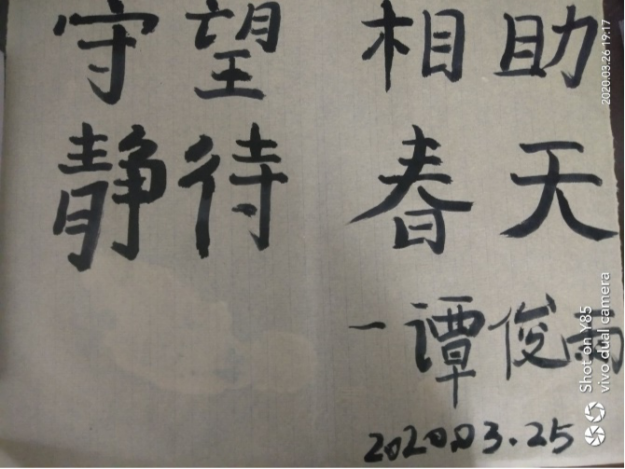 守望 相助
静待 春天
一谭俊雨
2020.03.25
2020.03.26 19:17
Shot on Y85
vivo dual camera